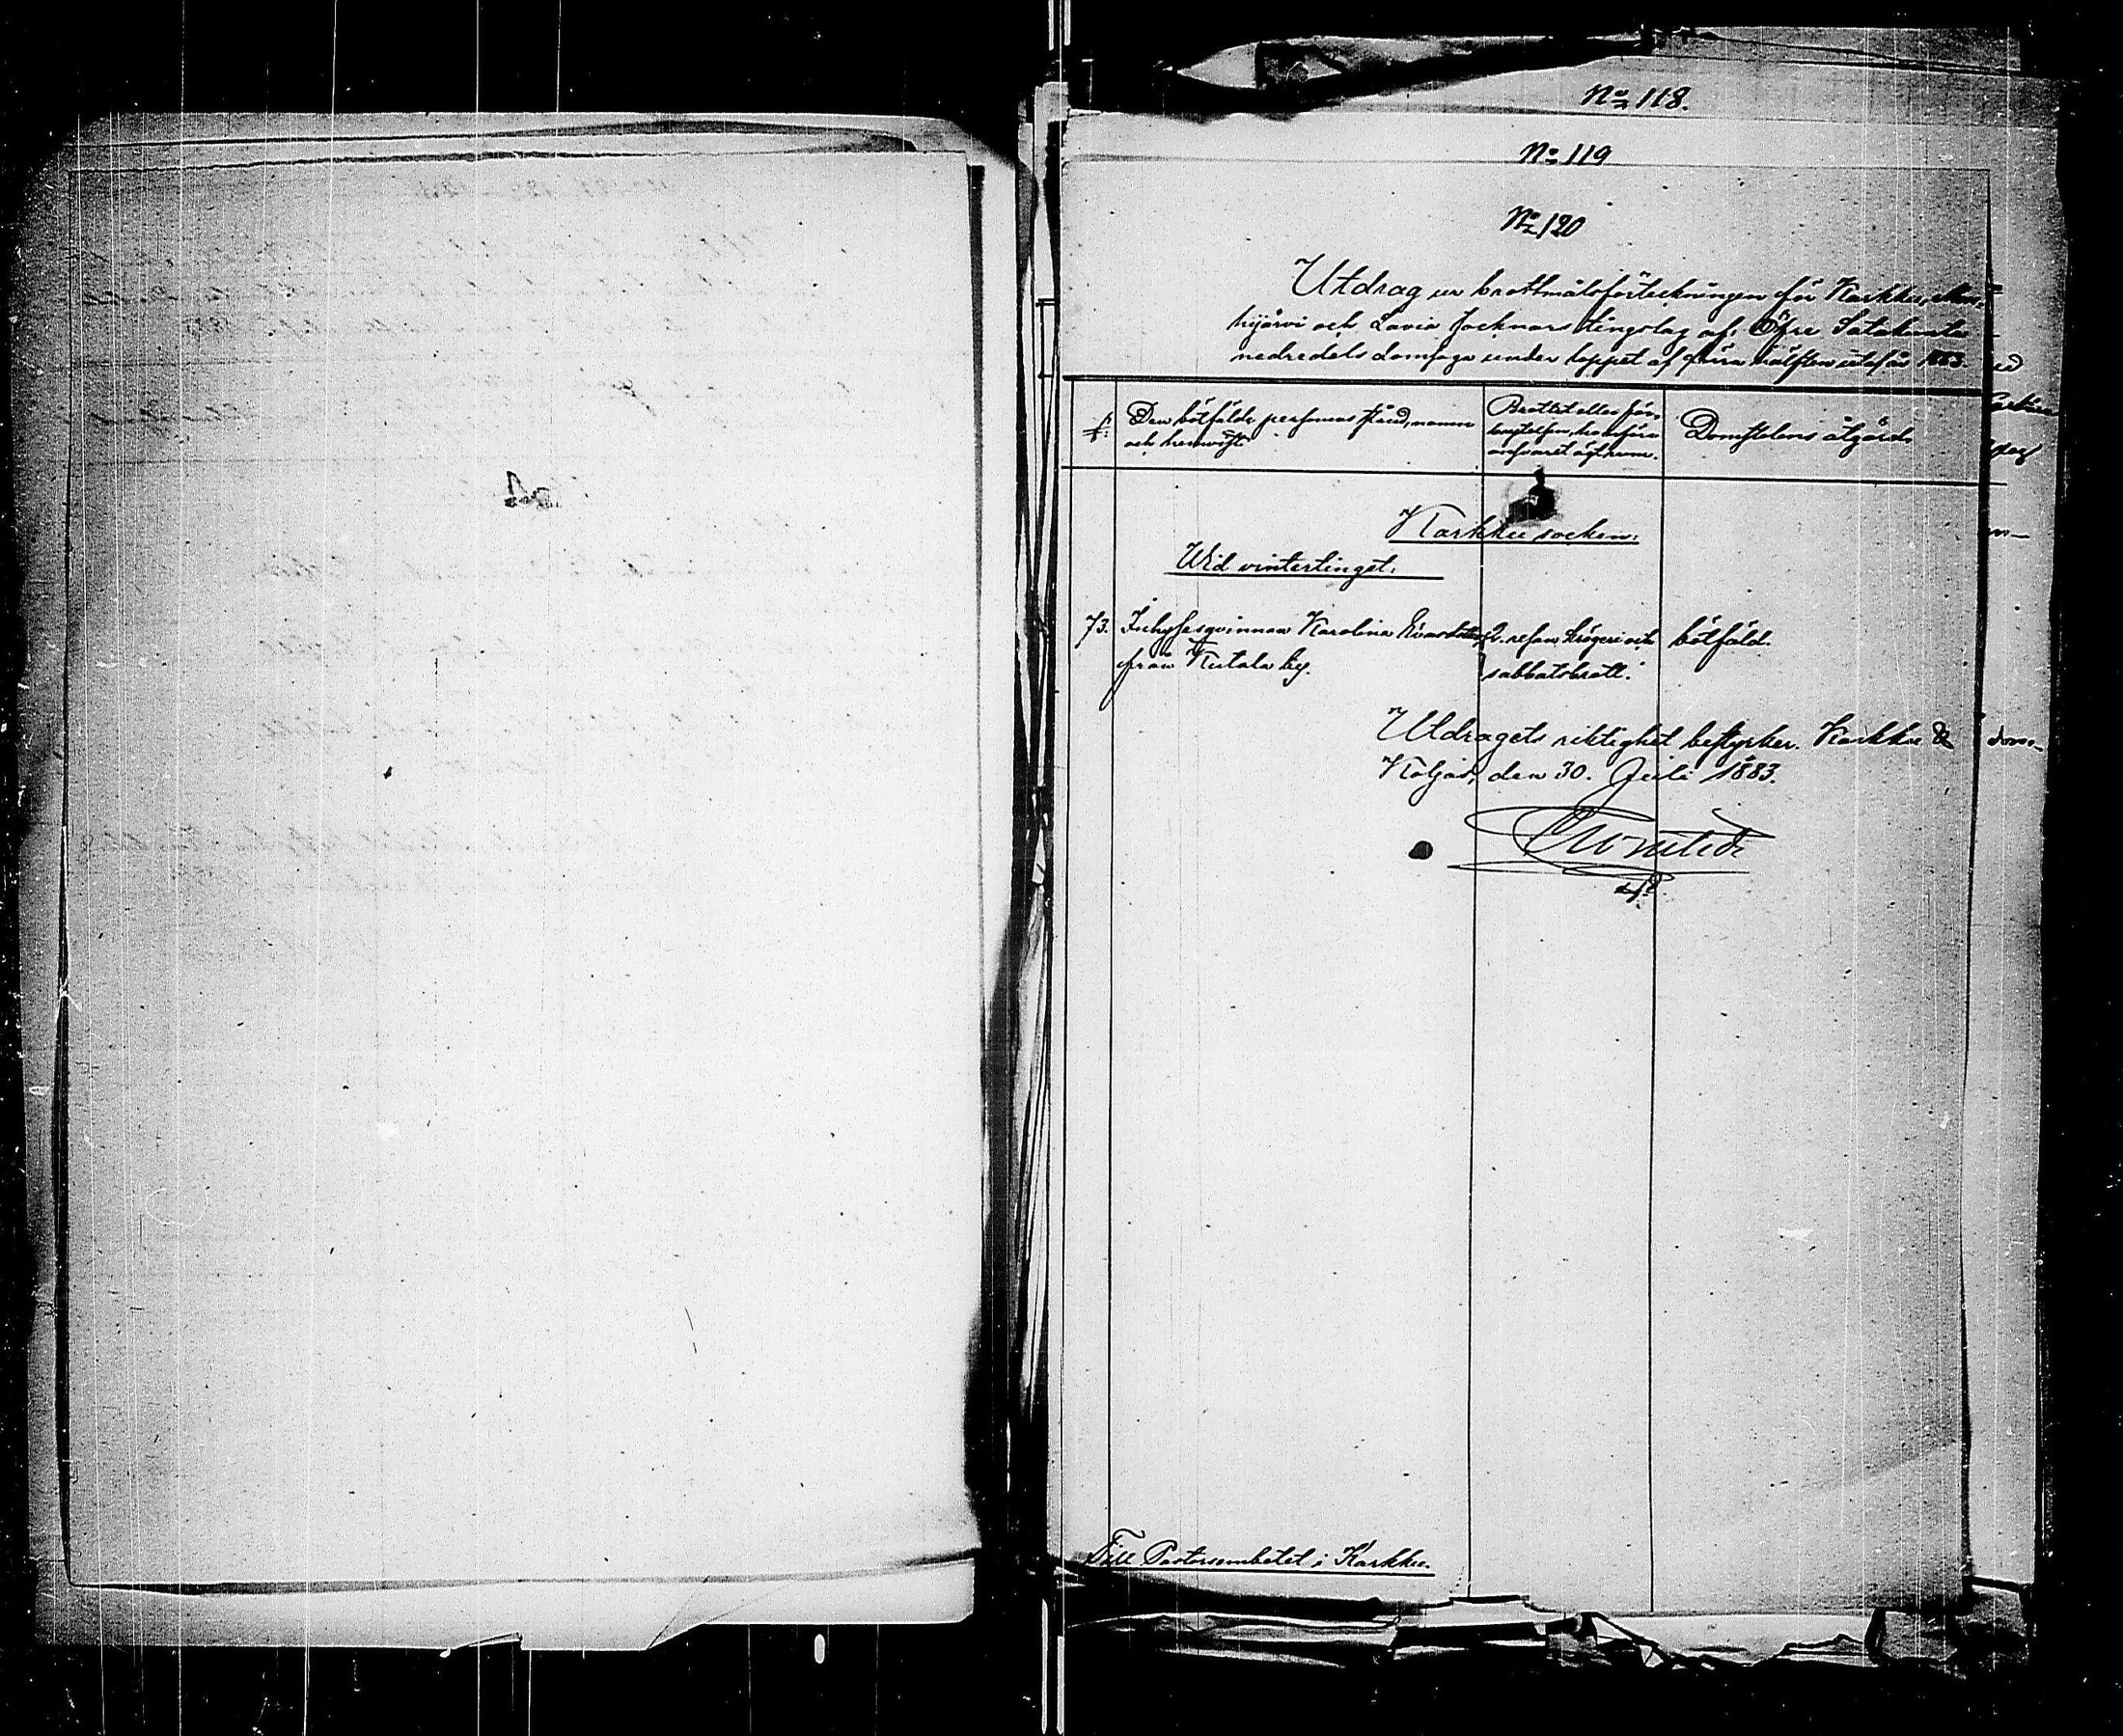 No 118.
No 119
No 120
Utdrag ur brottmålsförteckningen för Karkku,
hijärvi och Lavia socknars tingslag af Öfre Satakunta
nedredels domsaga under loppet af förra hälften utaf år 1883.
Den bötfälde personens stånd, namn
och hemvist
Brottet eller för-
brytelsen, hvarföre
ansvaret ägt rum.
Domstolens åtgärd.
Karkku socken:
Wid vintertinget:
73. Inhysesqvinnan Karolina 2. resan krögeri och bötfäld.
från Kutala by. sabbatsbrott.
Utdragets riktighet bestyrker. Karkku &
Koljas, den 30. Juli 1883.
Till Pastorsembetet i Karkku.